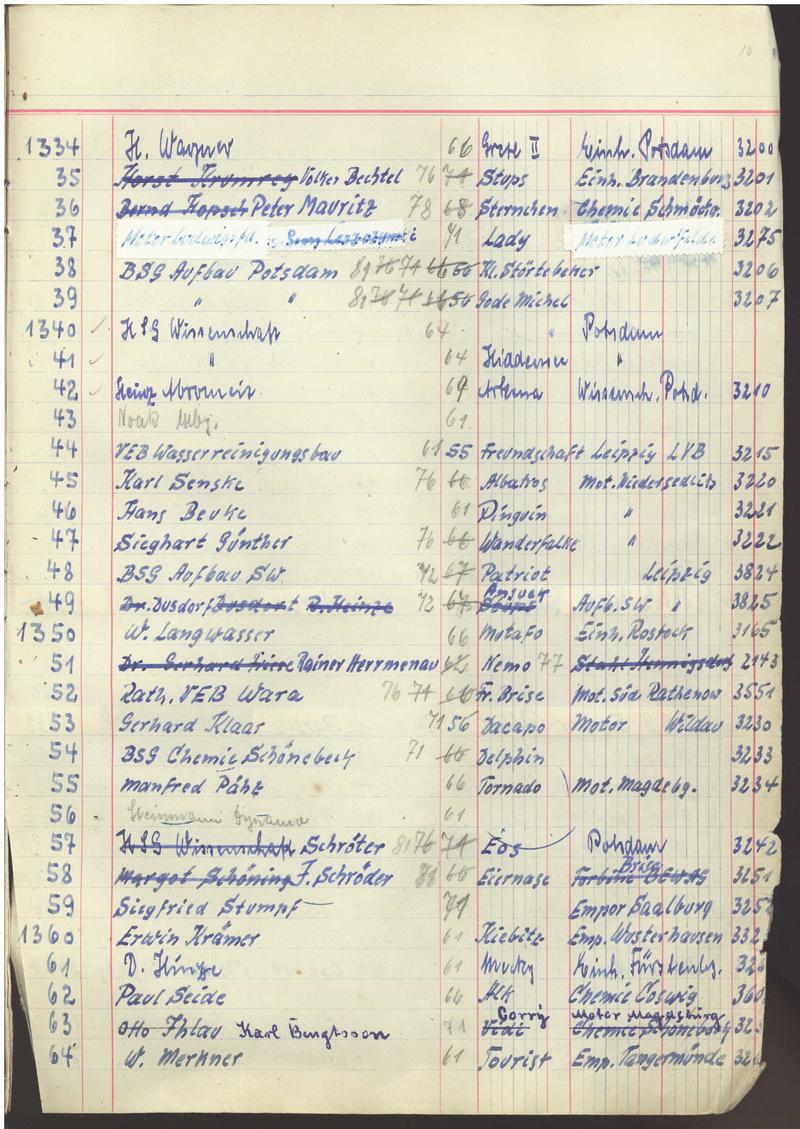 10
1334 H. Wagner 66 Grete II Einh. Potsdam 3200
35 Horst Kromrey Volker Bechtel 76 74 Stups Einh. Brandenburg 3201
36 Bernd Kopsch Peter Mauritz 78 68 Sternchen Chemie Schmöckw. 3202
37 Motor Ludwigsfd. 71 Lady Motor Ludwigsfelde 3275
38 BSG Aufbau Potsdam 81 76 74 66 Kl. Störtebeker 3206
39 " " 81 76 71 56 Gode Michel 3207
1340 HSG Wissenschaft 64 " Potsdam
41 " 64 Hiddensee "
42 Heinz Abromeit 69 Arkona Wissensch. Potsd. 3210
43 Noak Mbg. 61
44 VEB Wasserreinigungsbau 61 55 Freundschaft Leipzig LVB 3215
45 Karl Senske 76 66 Albatros Mot. Niedersedlitz 3220
46 Hans Beuke 61 Pinguin " 3221
47 Sieghart Günther 76 66 Wanderfalke " 3222
48 BSG Aufbau SW. 72 67 Patriot Leipzig 3824
49 Dr. Dusdorf Dusdorf R. Heinze 72 67 Aufb. SW " 3825
1350 W. Langwasser 66 Mutafo Einh. Rostock 3165
51 Dr. Gerhard Rainer Herrmenau 62 Nemo 77 Stahl Hennigsdorf 2143
52 Rath. VEB Wara 76 74 66 Fr. Brise Mot. Süd Rathenow 3551
53 Gerhard Klaar 71 56 Dacapo Motor Wildau 3230
54 BSG Chemie Schönebeck 71 66 Delphin 3233
55 Manfred Päht 66 Tornado Mot. Magdebg. 3234
56 Steinmann Dynamo 61
57 HSG Wissenschaft Schröter 81 76 74 Eos Potsdam 3242
58 Margot Schöning F. Schröder 81 66 Eiernase Turbine Brise 3251
59 Siegfried Stumpf 71 Empor Saalburg 325
1360 Erwin Krämer 61 Kiebitz Emp. Wusterhausen 332
61 D. Hinze 61 Mucky Einh. Fürstenbg. 32
62 Paul Seide 66 Alk Chemie Coswig 360
63 Otto Ihlau Karl Bengtsson 71 Vidi Gorry Chemie Schönebeg Motor Magdeburg 32
64 W. Merkner 61 Tourist Emp. Tangermünde 32